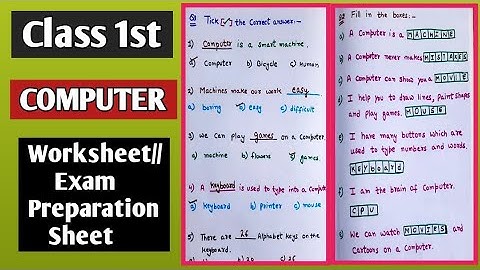 Class 1st
COMPUTER
Worksheet//
Exam
Preparation
Sheet
Q1 Tick [✓] the Correct answer:-
1) Computer is a smart machine.
a) Computer b) Bicycle c) human
2) Machines make our work easy
a) boring b) easy c) difficult
3) We can play games on a Computer.
a) machine b) flowers c) games
4) A Keyboard is used to type into a Computer
a) Keyboard b) printer c) mouse
5) There are 26 Alphabet keys on the
Keyboard.
b) 20 c) 26
Q2 Fill in the boxes:-
a) A Computer is a MACHINE
b) A Computer never makes MISTAKES
c) A Computer can show you a MOVIE
d) I help you to draw lines, Paint shapes
and play games. MOUSE
e) I have many buttons which are
used to type numbers and words.
KEYBOARD
f) I am the brain of Computer.
CPU
g) We can watch MOVIES and
Cartoons on a Computer.